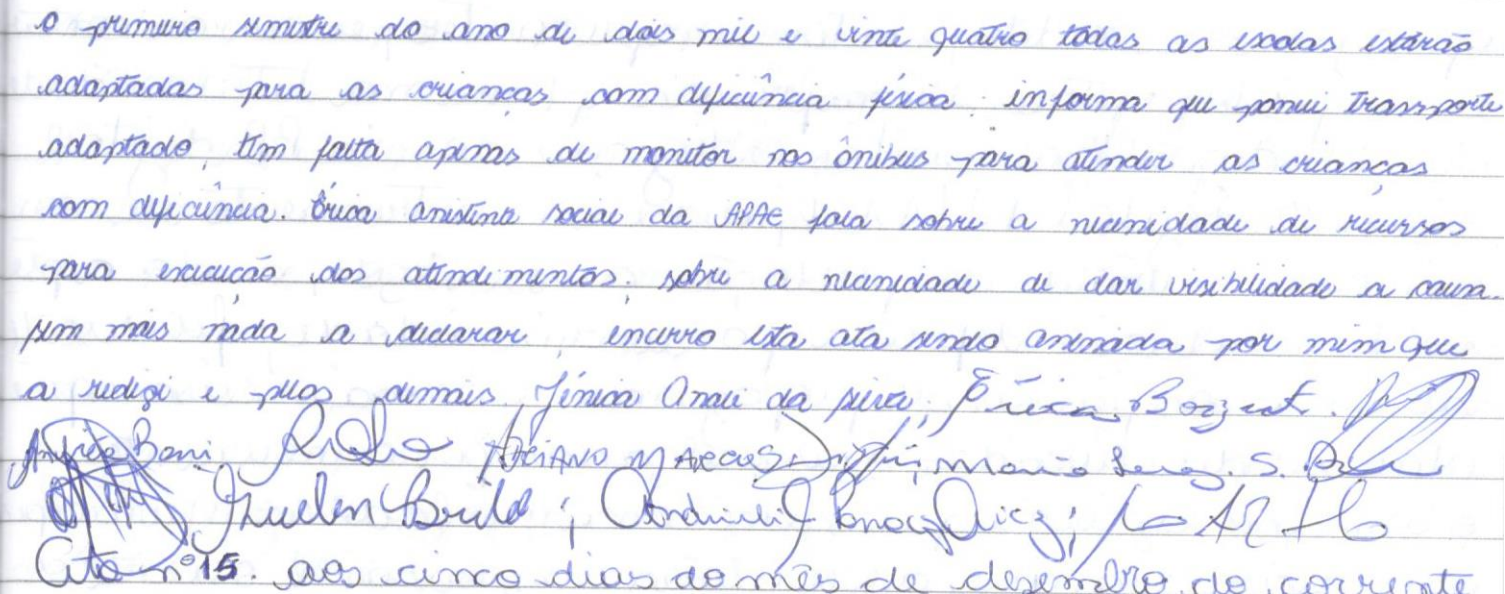 o primeiro semestre do ano de dois mil e vinte quatro todas as escolas estarão
adaptadas para as crianças com deficiência física. informa que possui transporte
adaptado, tem falta apenas de monitor nos ônibus para atender as crianças
com deficiência. Érica assistente social da APAE fala sobre a necessidade de recursos
para execução dos atendimentos. sobre a necessidade de dar visibilidade a causa.
sem mais nada a declarar, encerro esta ata sendo assinada por mim que
a redigi e pelos demais. Jénica da Silva; Érica
Boni Marcos Maria S.
Suelen
Ata nº 15. aos cinco dias do mês de desembro do corrente